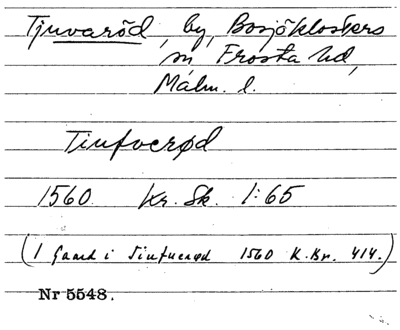 Tjuvaröd, by, Bosjöklosters
sn Frosta hd,
Malm. l.
Tiufverød
1560 Kr. Sk. 1:65
(1 Gaard i Tiufuerød 1560 K.Br. 414.)
Nr 5548.